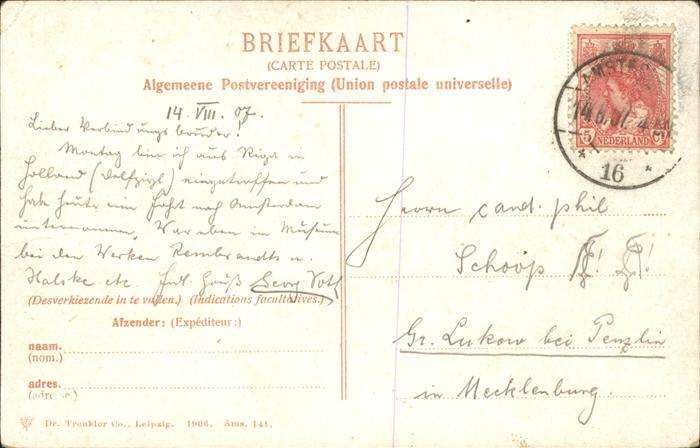 BRIEFKAART
(CARTE POSTALE)
Algemeene Postvereeniging (Union postale universelle)
14. VIII. 07.
Lieber Verbindungsbruder!
Montag bin ich aus Riga in
Holland (Delfzijl) eingetroffen und
habe heute eine Fahrt nach Amsterdam
unternommen. War eben im Museum
bei den Werken Rembrandts u.
Halske etc. Frdl. Gruß Georg Voth
(Indications facultatives.)
Afzender: (Expéditeur:)
naam.
(nom.)
adres.
(adresse.)
Dr. Trenkler Co., Leipzig. 1906. Ams. 141.
AMSTERDAM
16
5 NEDERLAND
Herrn cand. phil
Schoop
Gr. Lukow bei Penzlin
in Mecklenburg.